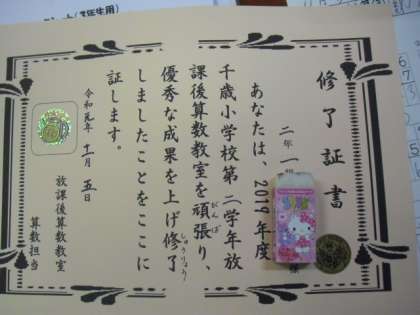 年生用)
修了証書
二年一
あなたは、2019年度
千歳小学校第二学年放
課後算数教室を頑張り、
がんば
優秀な成果を上げ修了
しゅうりょう
しましたことをここに
証します。
令和元年十一月五日
放課後算数教室
算数担当